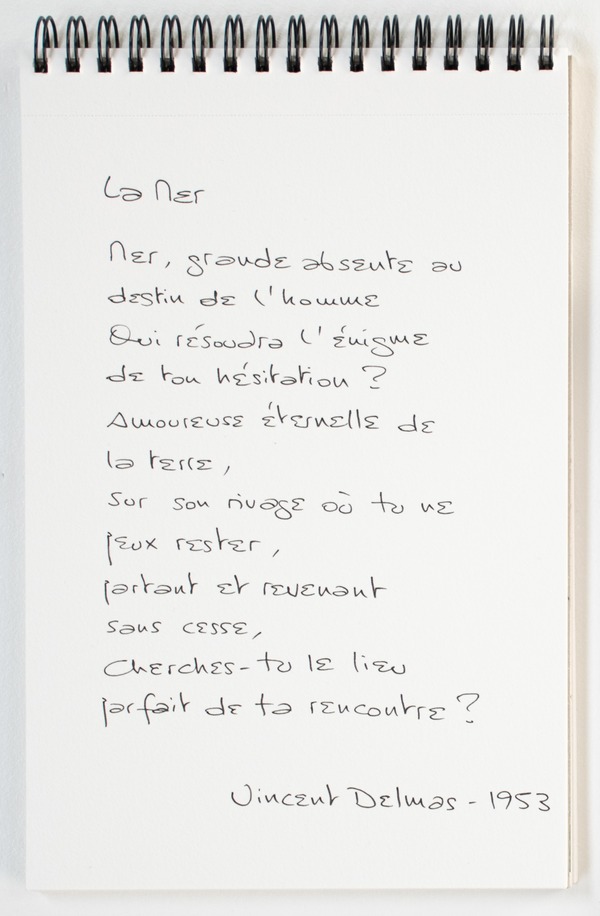 La Mer
Mer, grande absente au
destin de l'homme
Qui résoudra l'énigme
de ton hésitation ?
Amoureuse éternelle de
la terre,
sur son rivage où tu ne
peux rester,
partant et revenant
sans cesse,
Cherches-tu le lieu
parfait de ta rencontre ?
Vincent Delmas - 1953